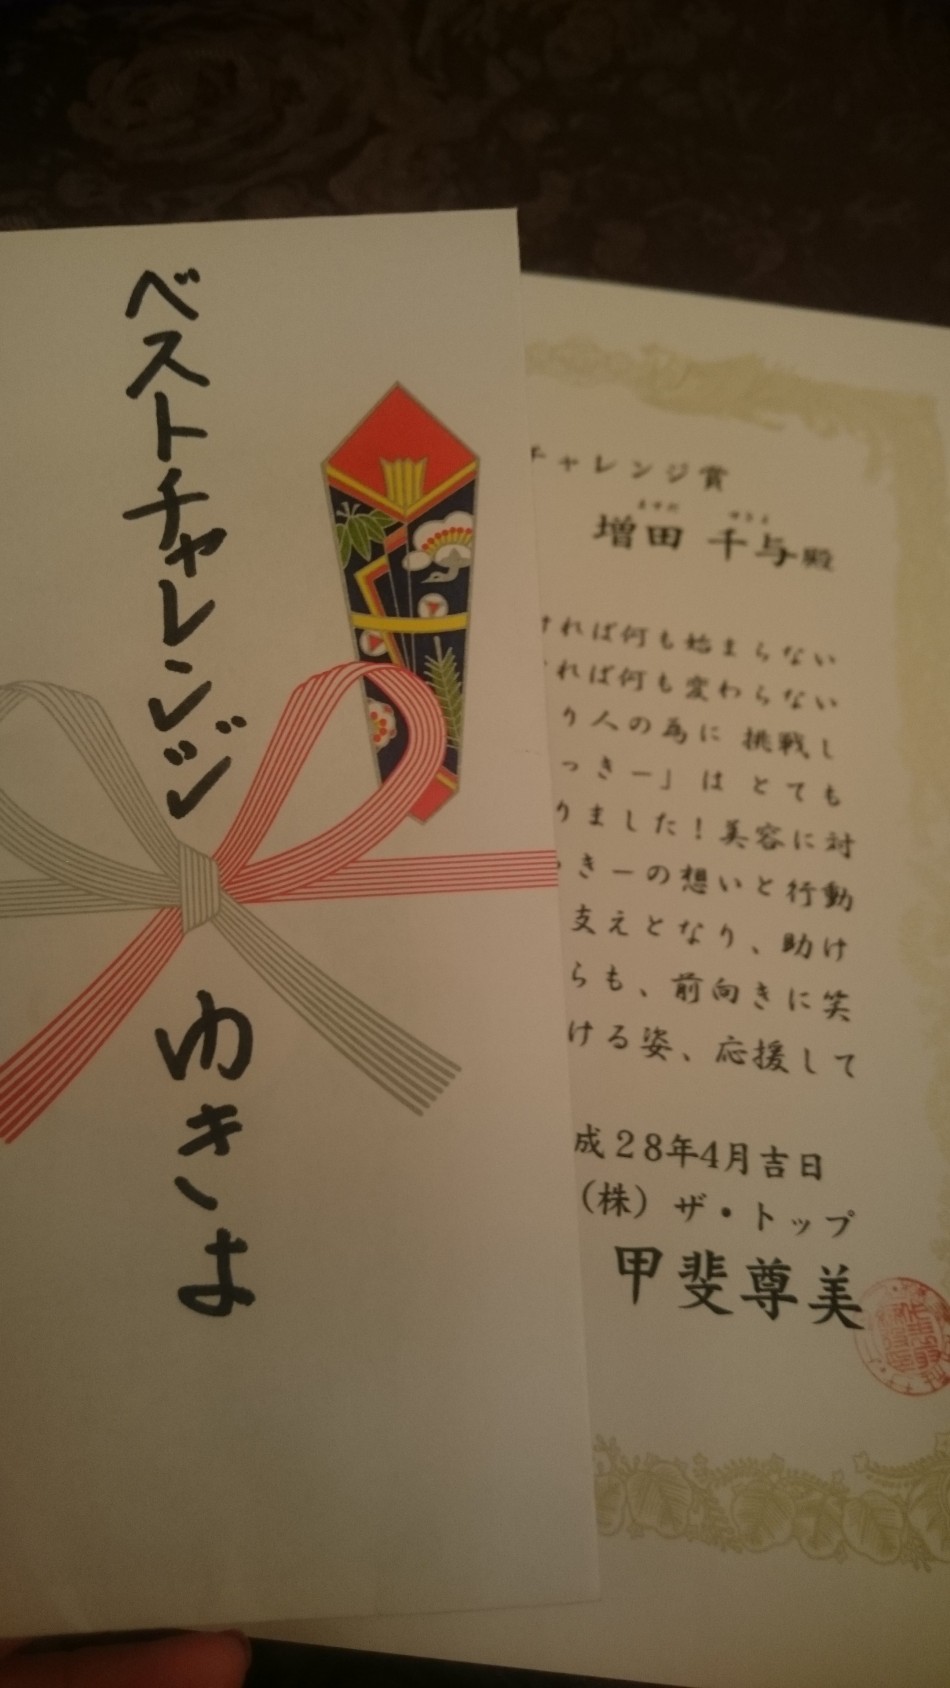 ベストチャレンジ
ゆきよ
チャレンジ賞
ますだ ゆきよ
増田 千与殿
ければ何も始まらない
れば何も変わらない
り人の為に 挑戦し
っきー」は とても
りました！美容に対
きーの想いと行動
支えとなり、助け
らも、前向きに笑
ける姿、応援して
成２８年４月吉日
（株）ザ・トップ
甲斐尊美